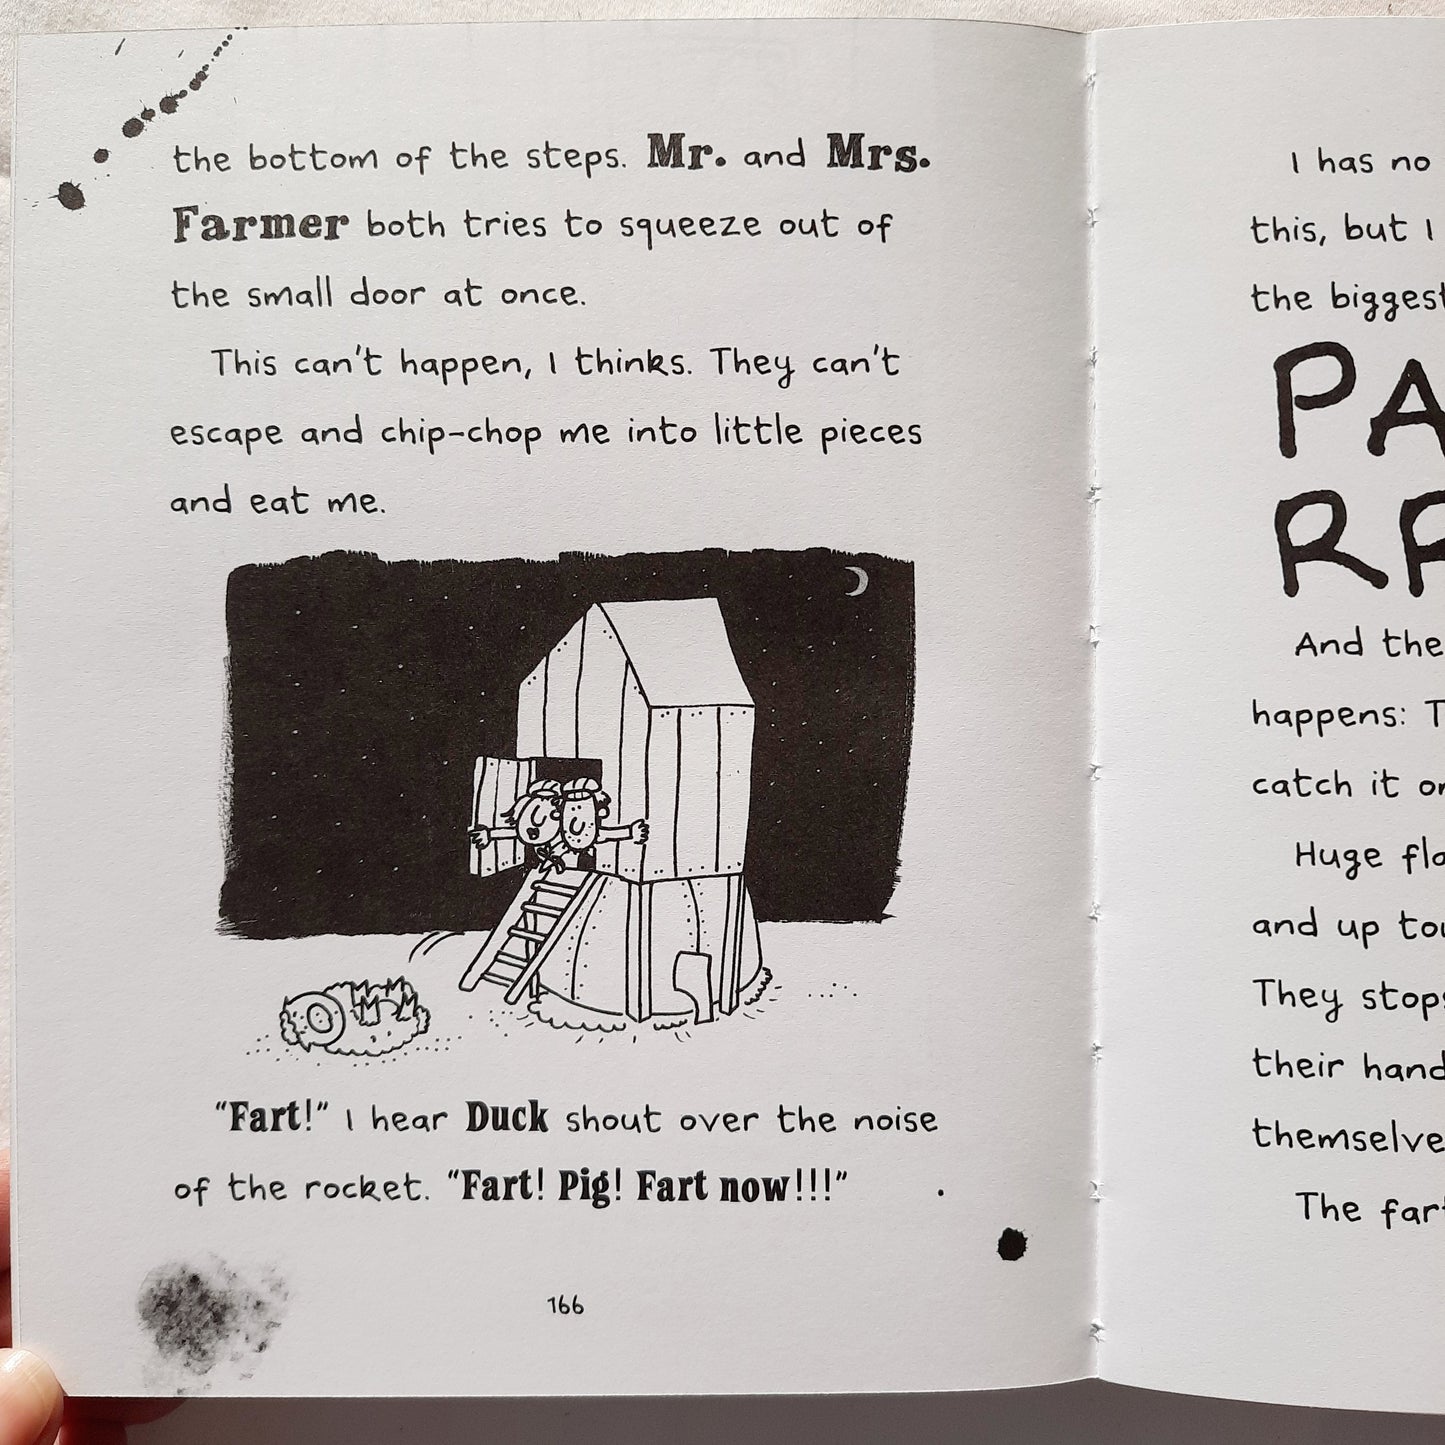 the bottom of the steps. Mr. and Mrs.
Farmer both tries to squeeze out of
the small door at once.
This can't happen, I thinks. They can't
escape and chip-chop me into little pieces
and eat me.
"Fart!" I hear Duck shout over the noise
of the rocket. "Fart! Pig! Fart now!!!"
166
I has no
this, but I
the biggest
PA
RR
And the
happens: T
catch it
Huge
and up
They
their
The